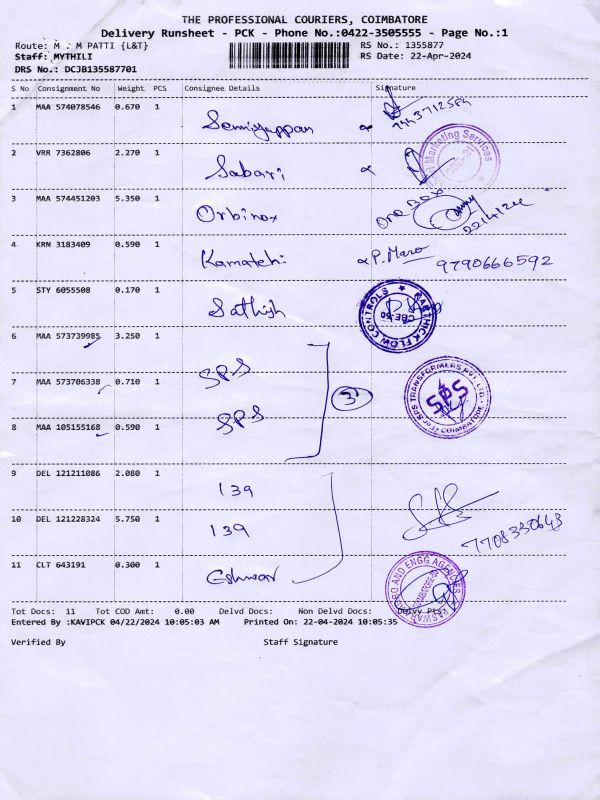 THE PROFESSIONAL COURIERS, COIMBATORE
Delivery Runsheet - PCK - Phone No.:0422-3505555 - Page No.:1
Route: M M PATTI {L&T} RS No.: 1355877
Staff: MYTHILI RS Date: 22-Apr-2024
DRS No.: DCJB135587701
S No Consignment No Weight PCS Consignee Details Signature
1 MAA 574078546 0.670 1
2 VRR 7362806 2.270 1 Sabari
3 MAA 574451203 5.350 1 Orbinox ORBINOX 22/4/24
4 KRN 3183409 0.590 1 Kamatchi 9790666592
5 STY 6055508 0.170 1 Sathish
FLOW CONTROLS CBE-50
6 MAA 573739985 3.250 1 SPS
7 MAA 573706338 0.710 1 SPS 3
For SPS TRANSFORMERS PVT. LTD. SPS COIMBATORE
8 MAA 105155168 0.590 1 SPS
9 DEL 121211086 2.080 1 139
10 DEL 121228324 5.750 1 139 7708330643
11 CLT 643191 0.300 1 Eshwar
AND ENGG AGENCIES
Tot Docs: 11 Tot COD Amt: 0.00 Delvd Docs: Non Delvd Docs: Delvy Pts:
Entered By :KAVIPCK 04/22/2024 10:05:03 AM Printed On: 22-04-2024 10:05:35
Verified By Staff Signature